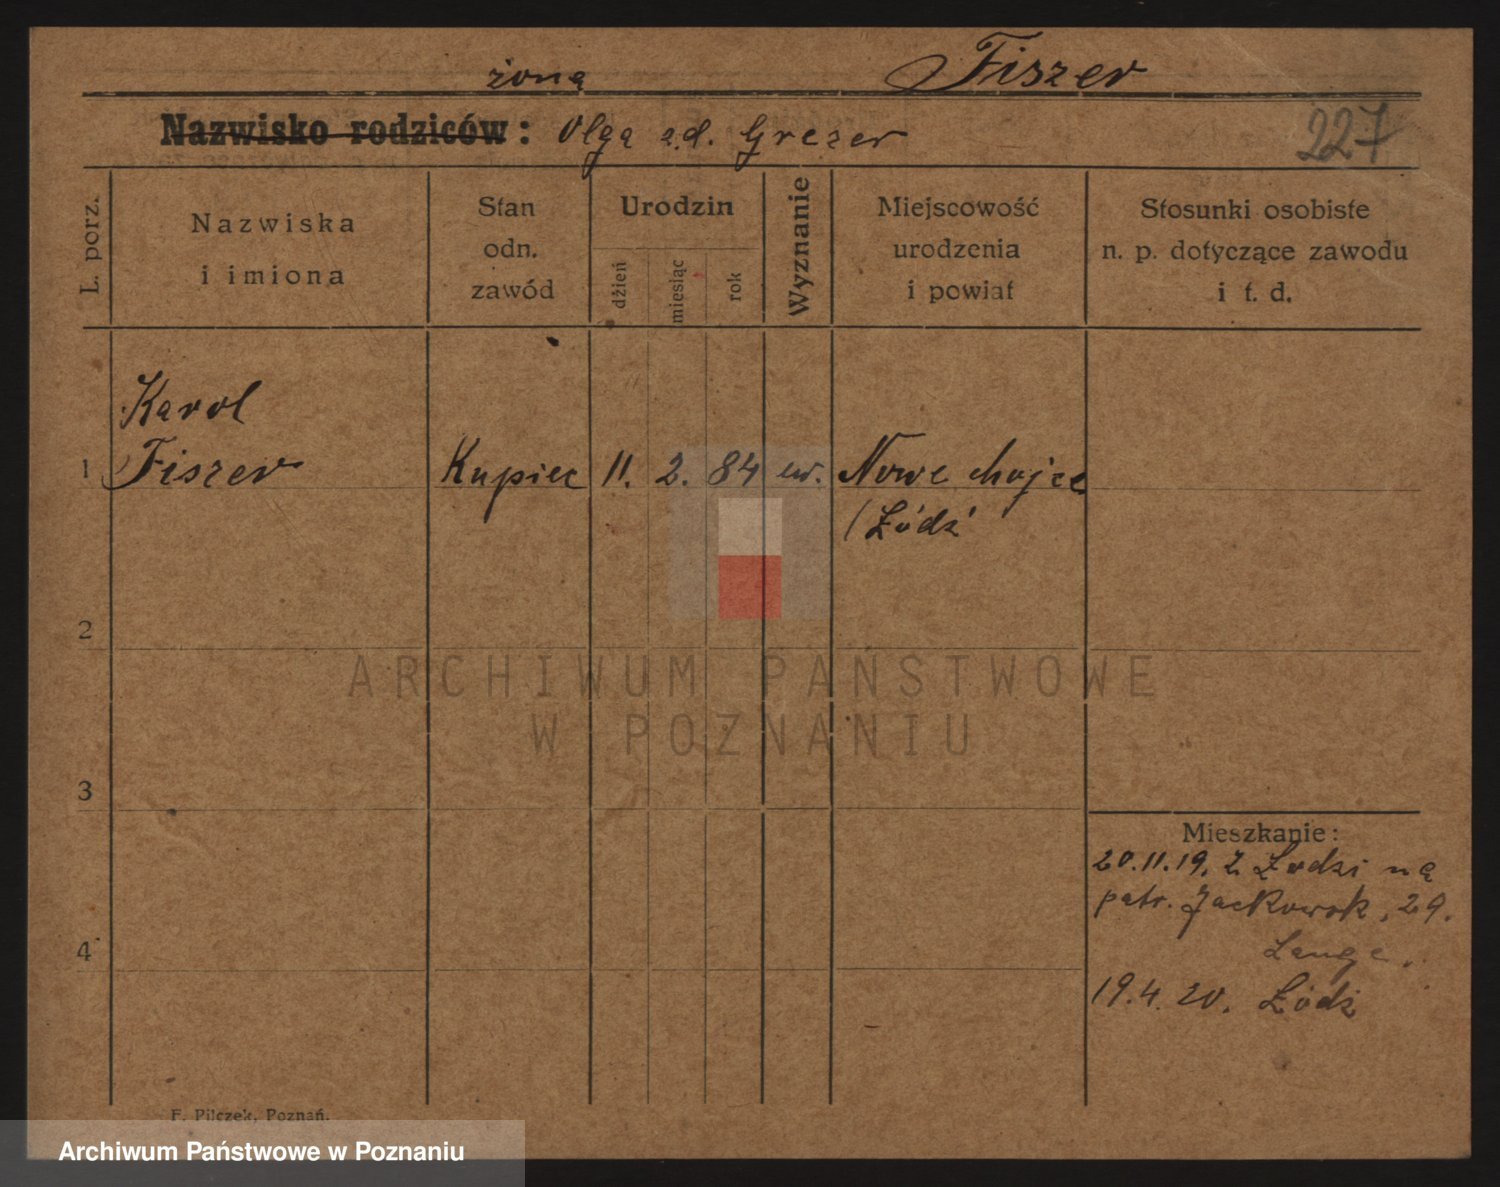 żona Fiszer
Nazwisko rodziców: Olga z.d. Grezer
227
L. porz.
Nazwiska
i imiona
Stan
odn.
zawód
Urodzin
dzień
miesiąc
rok
Wyznanie
Miejscowość
urodzenia
i powiat
Stosunki osobiste
n. p. dotyczące zawodu
i t. d.
Karol
1 Fiszer Kupiec 11. 2. 84 ew. Nowe chojce
/Łódź
2
ARCHIWUM PAŃSTWOWE
W POZNANIU
3
Mieszkanie:
20.11.19. z Łodzi na
patr. Jackowsk. 29.
Lange.
4
19.4.20. Łódź
F. Pilczek, Poznań.
Archiwum Państwowe w Poznaniu